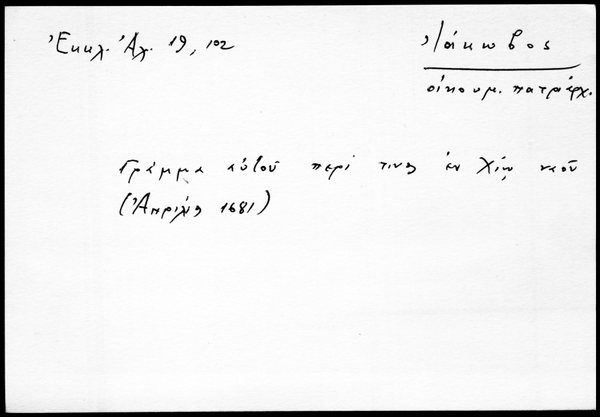 Ἐκκλ. Ἀλ. 19, 102
Ἰάκωβος
οἰκουμ. πατριάρχ.
Γράμμα αὐτοῦ περί τινος ἐν Χίῳ ναοῦ
(Ἀπρίλιος 1681)